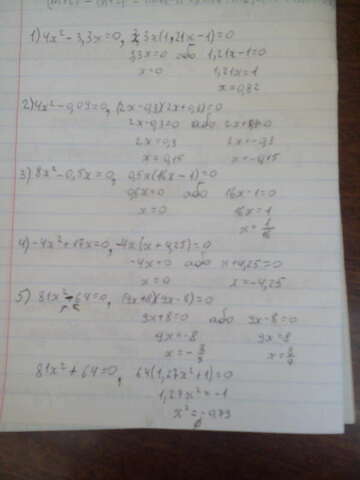 1) 4x² - 3,3x = 0, 3,3x(1,21x - 1) = 0
3,3x = 0 або 1,21x - 1 = 0
x = 0 1,21x = 1
x = 0,82
2) 4x² - 0,09 = 0, (2x - 0,3)(2x + 0,3) = 0
2x - 0,3 = 0 або 2x + 0,3 = 0
2x = 0,3 2x = -0,3
x = 0,15 x = -0,15
3) 8x² - 0,5x = 0, 0,5x(16x - 1) = 0
0,5x = 0 або 16x - 1 = 0
x = 0 16x = 1
x = 1/16
4) -4x² + 17x = 0, -4x(x + 4,25) = 0
-4x = 0 або x + 4,25 = 0
x = 0 x = -4,25
5) 81x² - 64 = 0, (9x + 8)(9x - 8) = 0
9x + 8 = 0 або 9x - 8 = 0
9x = -8 9x = 8
x = -8/9 x = 8/9
81x² + 64 = 0, 64(1,27x² + 1) = 0
1,27x² = -1
x² = -0,79